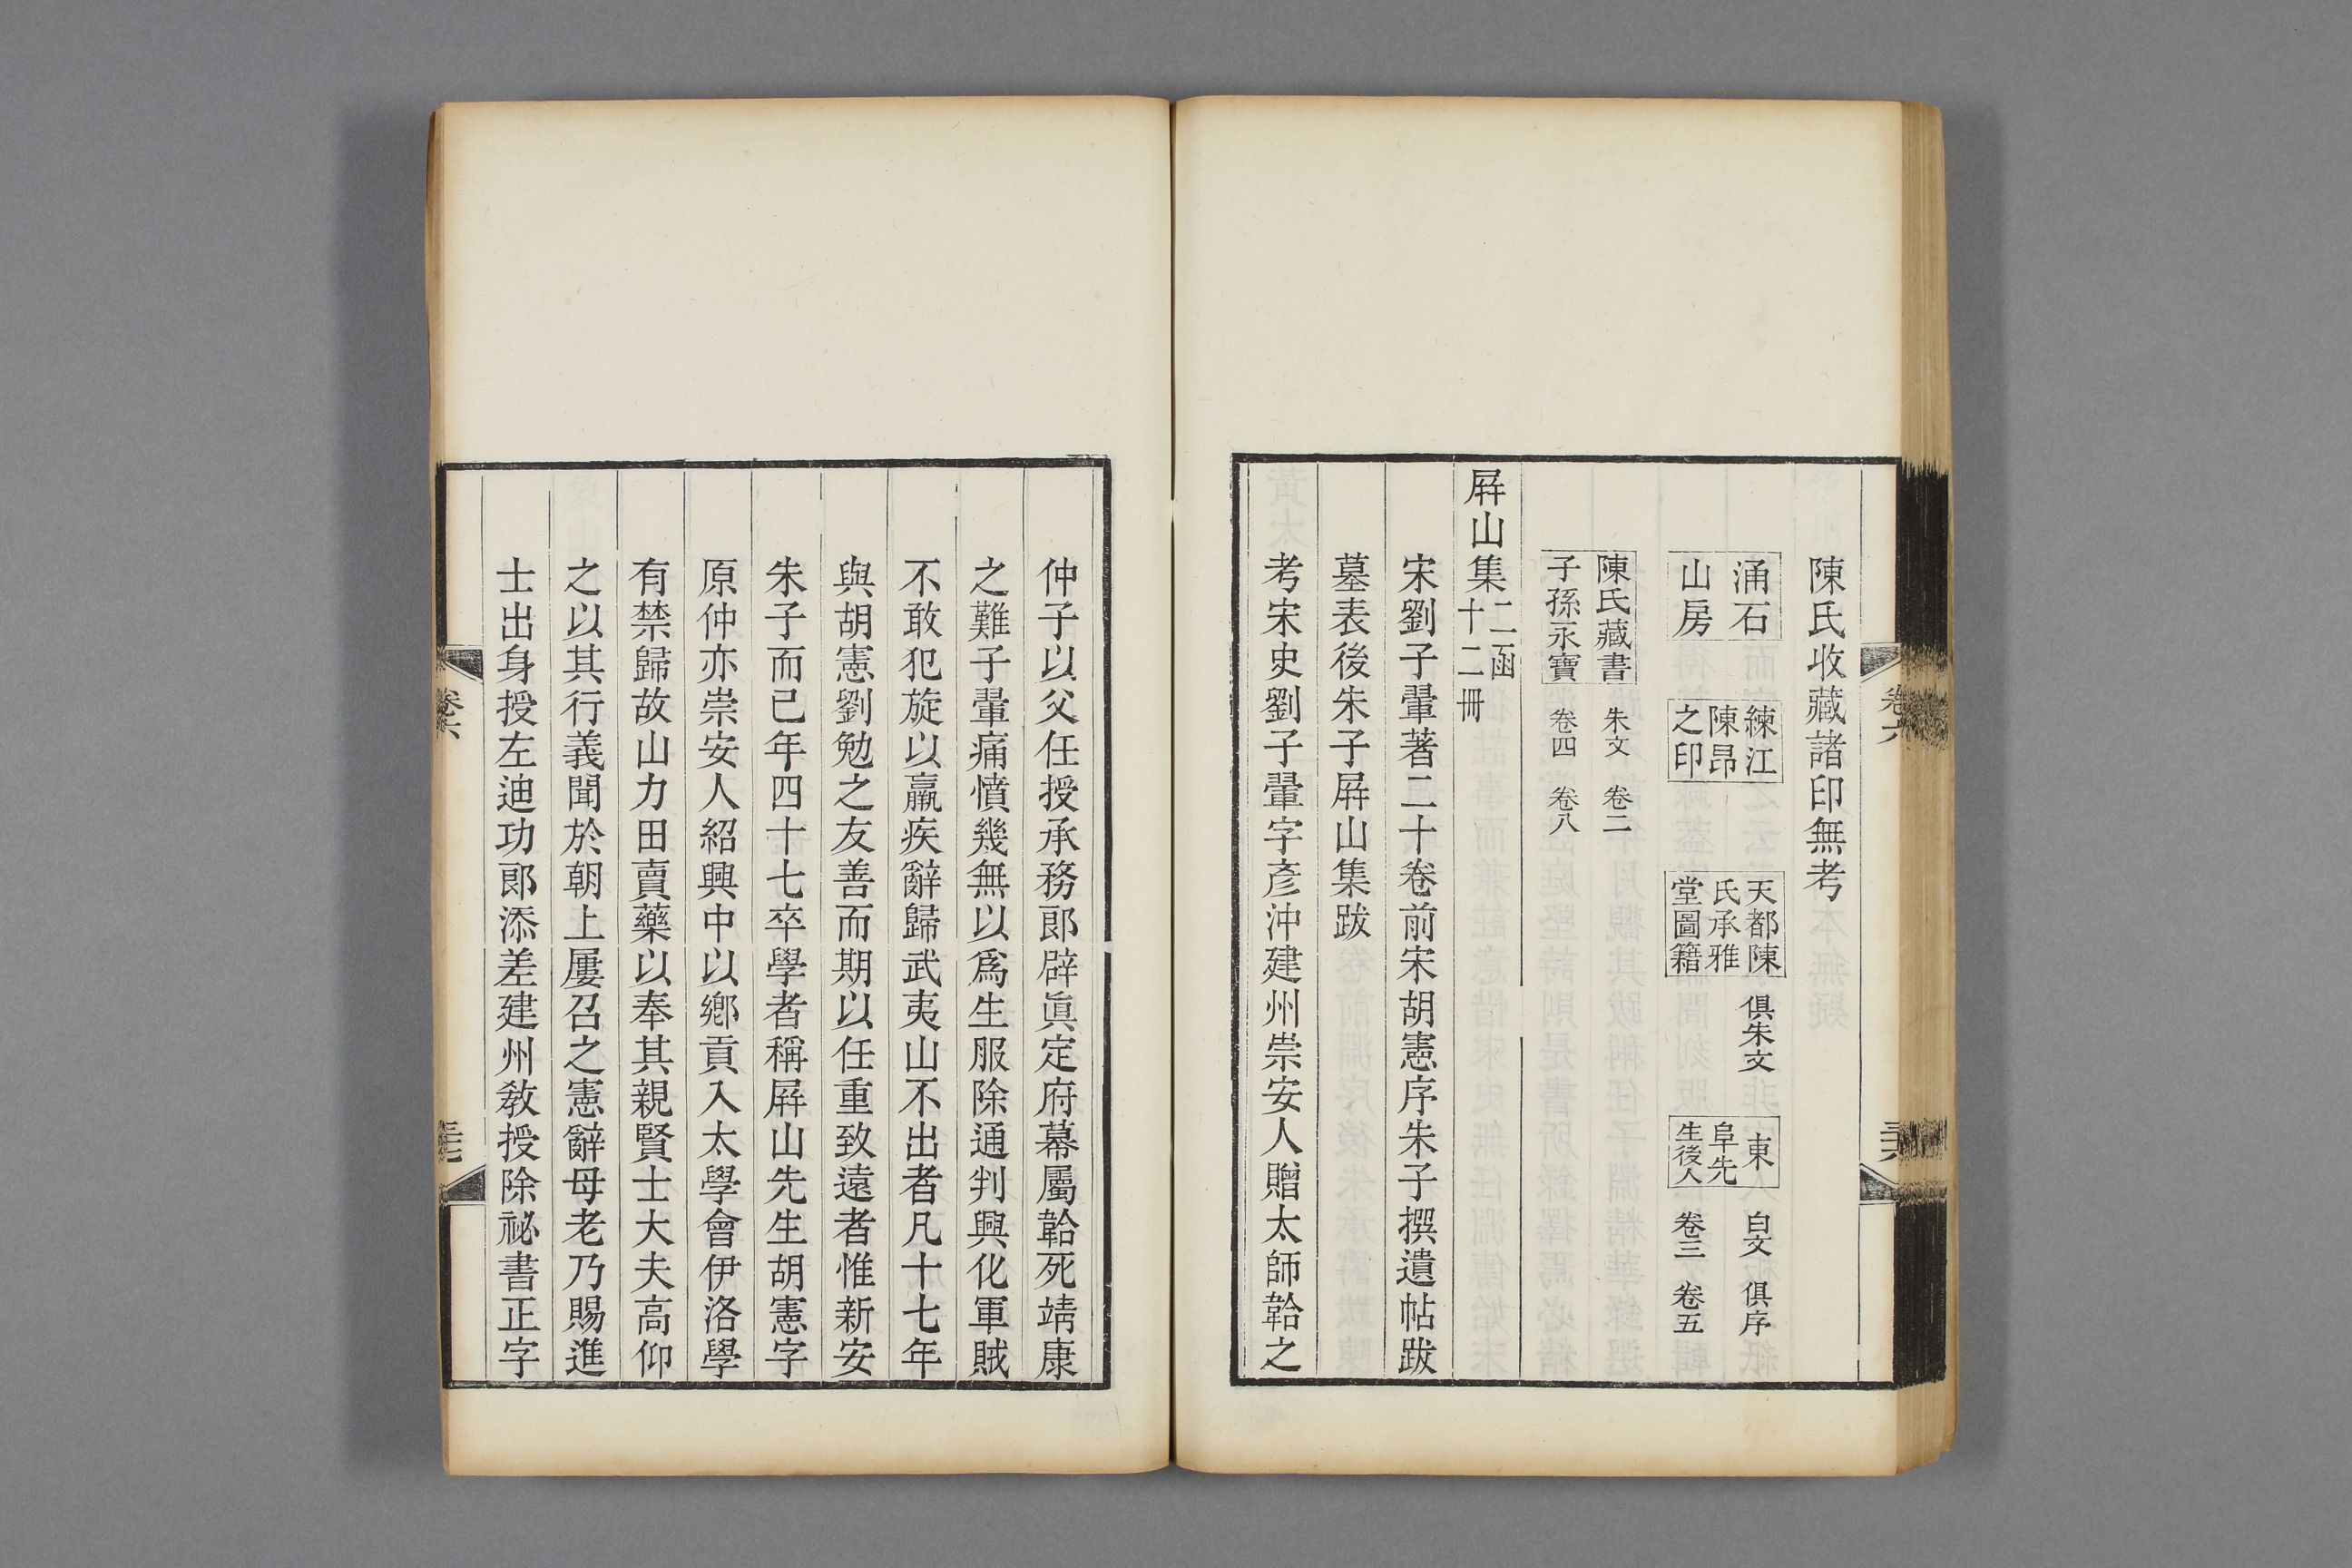 陳氏收藏諸印無考
涌石
山房
練江
陳昂
之印
天都陳
氏承雅
堂圖籍
俱朱文
東
阜先
生後人
白文
俱序
卷三
卷五
陳氏藏書
子孫永寶
朱文
卷二
卷四
卷八
屛山集二函十二冊
宋劉子翬著二十卷前宋胡憲序朱子撰遺帖跋
墓表後朱子屛山集跋
考宋史劉子翬字彥沖建州崇安人贈太師韐之
卷六
仲子以父任授承務郎辟眞定府幕屬韐死靖康
之難子翬痛憤幾無以爲生服除通判興化軍賊
不敢犯旋以羸疾辭歸武夷山不出者凡十七年
與胡憲劉勉之友善而期以任重致遠者惟新安
朱子而已年四十七卒學者稱屛山先生胡憲字
原仲亦崇安人紹興中以鄉貢入太學會伊洛學
有禁歸故山力田賣藥以奉其親賢士大夫高仰
之以其行義聞於朝上屢召之憲辭母老乃賜進
士出身授左迪功郎添差建州敎授除祕書正字
卷六